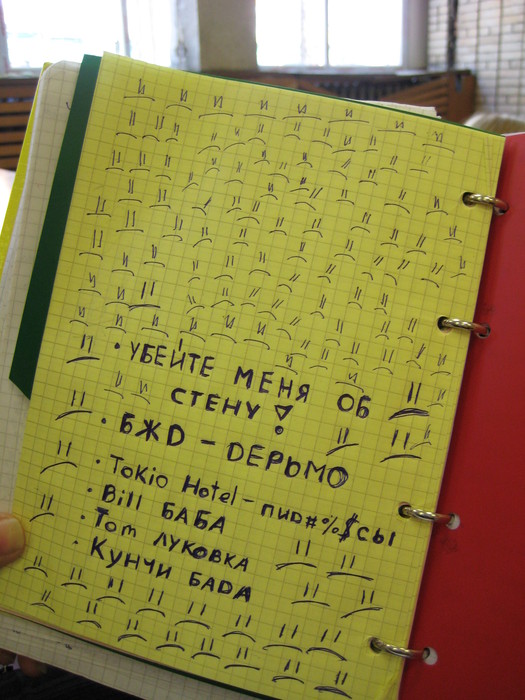 • УБЕЙТЕ МЕНЯ ОБ
СТЕНУ!
• БЖD – DЕРЬМО
• Tokio Hotel – ПИD#%$СЫ
• Bill БАБА
• Tom ЛУКОВКА
• КУНЧИ БАDА